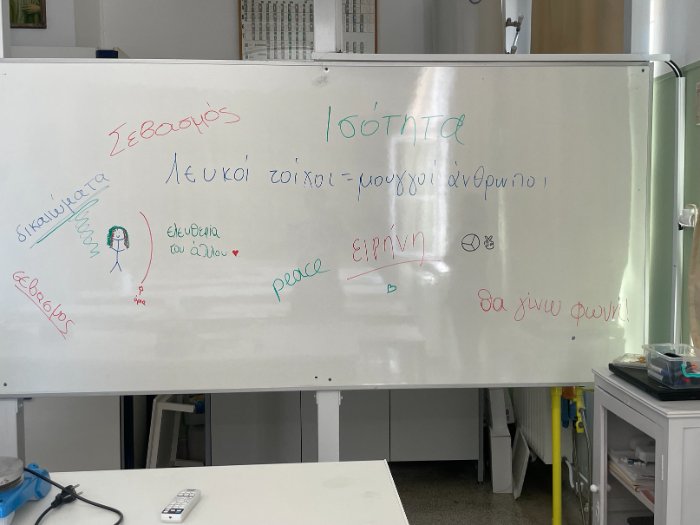 Σεβασμός
Ισότητα
Λευκοί τοίχοι = μουγγοί άνθρωποι
δικαιώματα
ελευθερία
του άλλου
ειρήνη
peace
σεβασμος
θα γίνω φωνή!